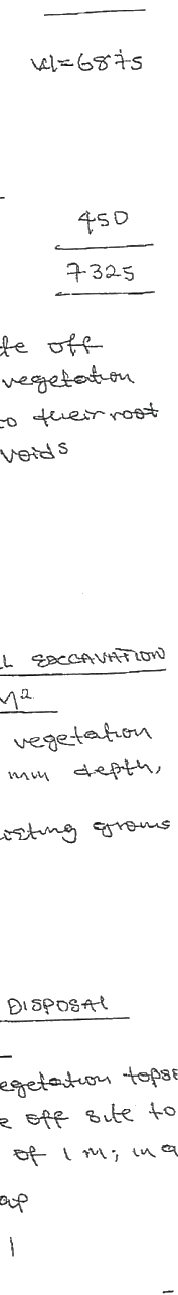 w=6875
450
7325
te off
vegetation
to their root
voids
L EXCAVATION
M²
vegetation
mm depth,
isting
DISPOSAL
egetation
e off site to
of 1 m; in a
1